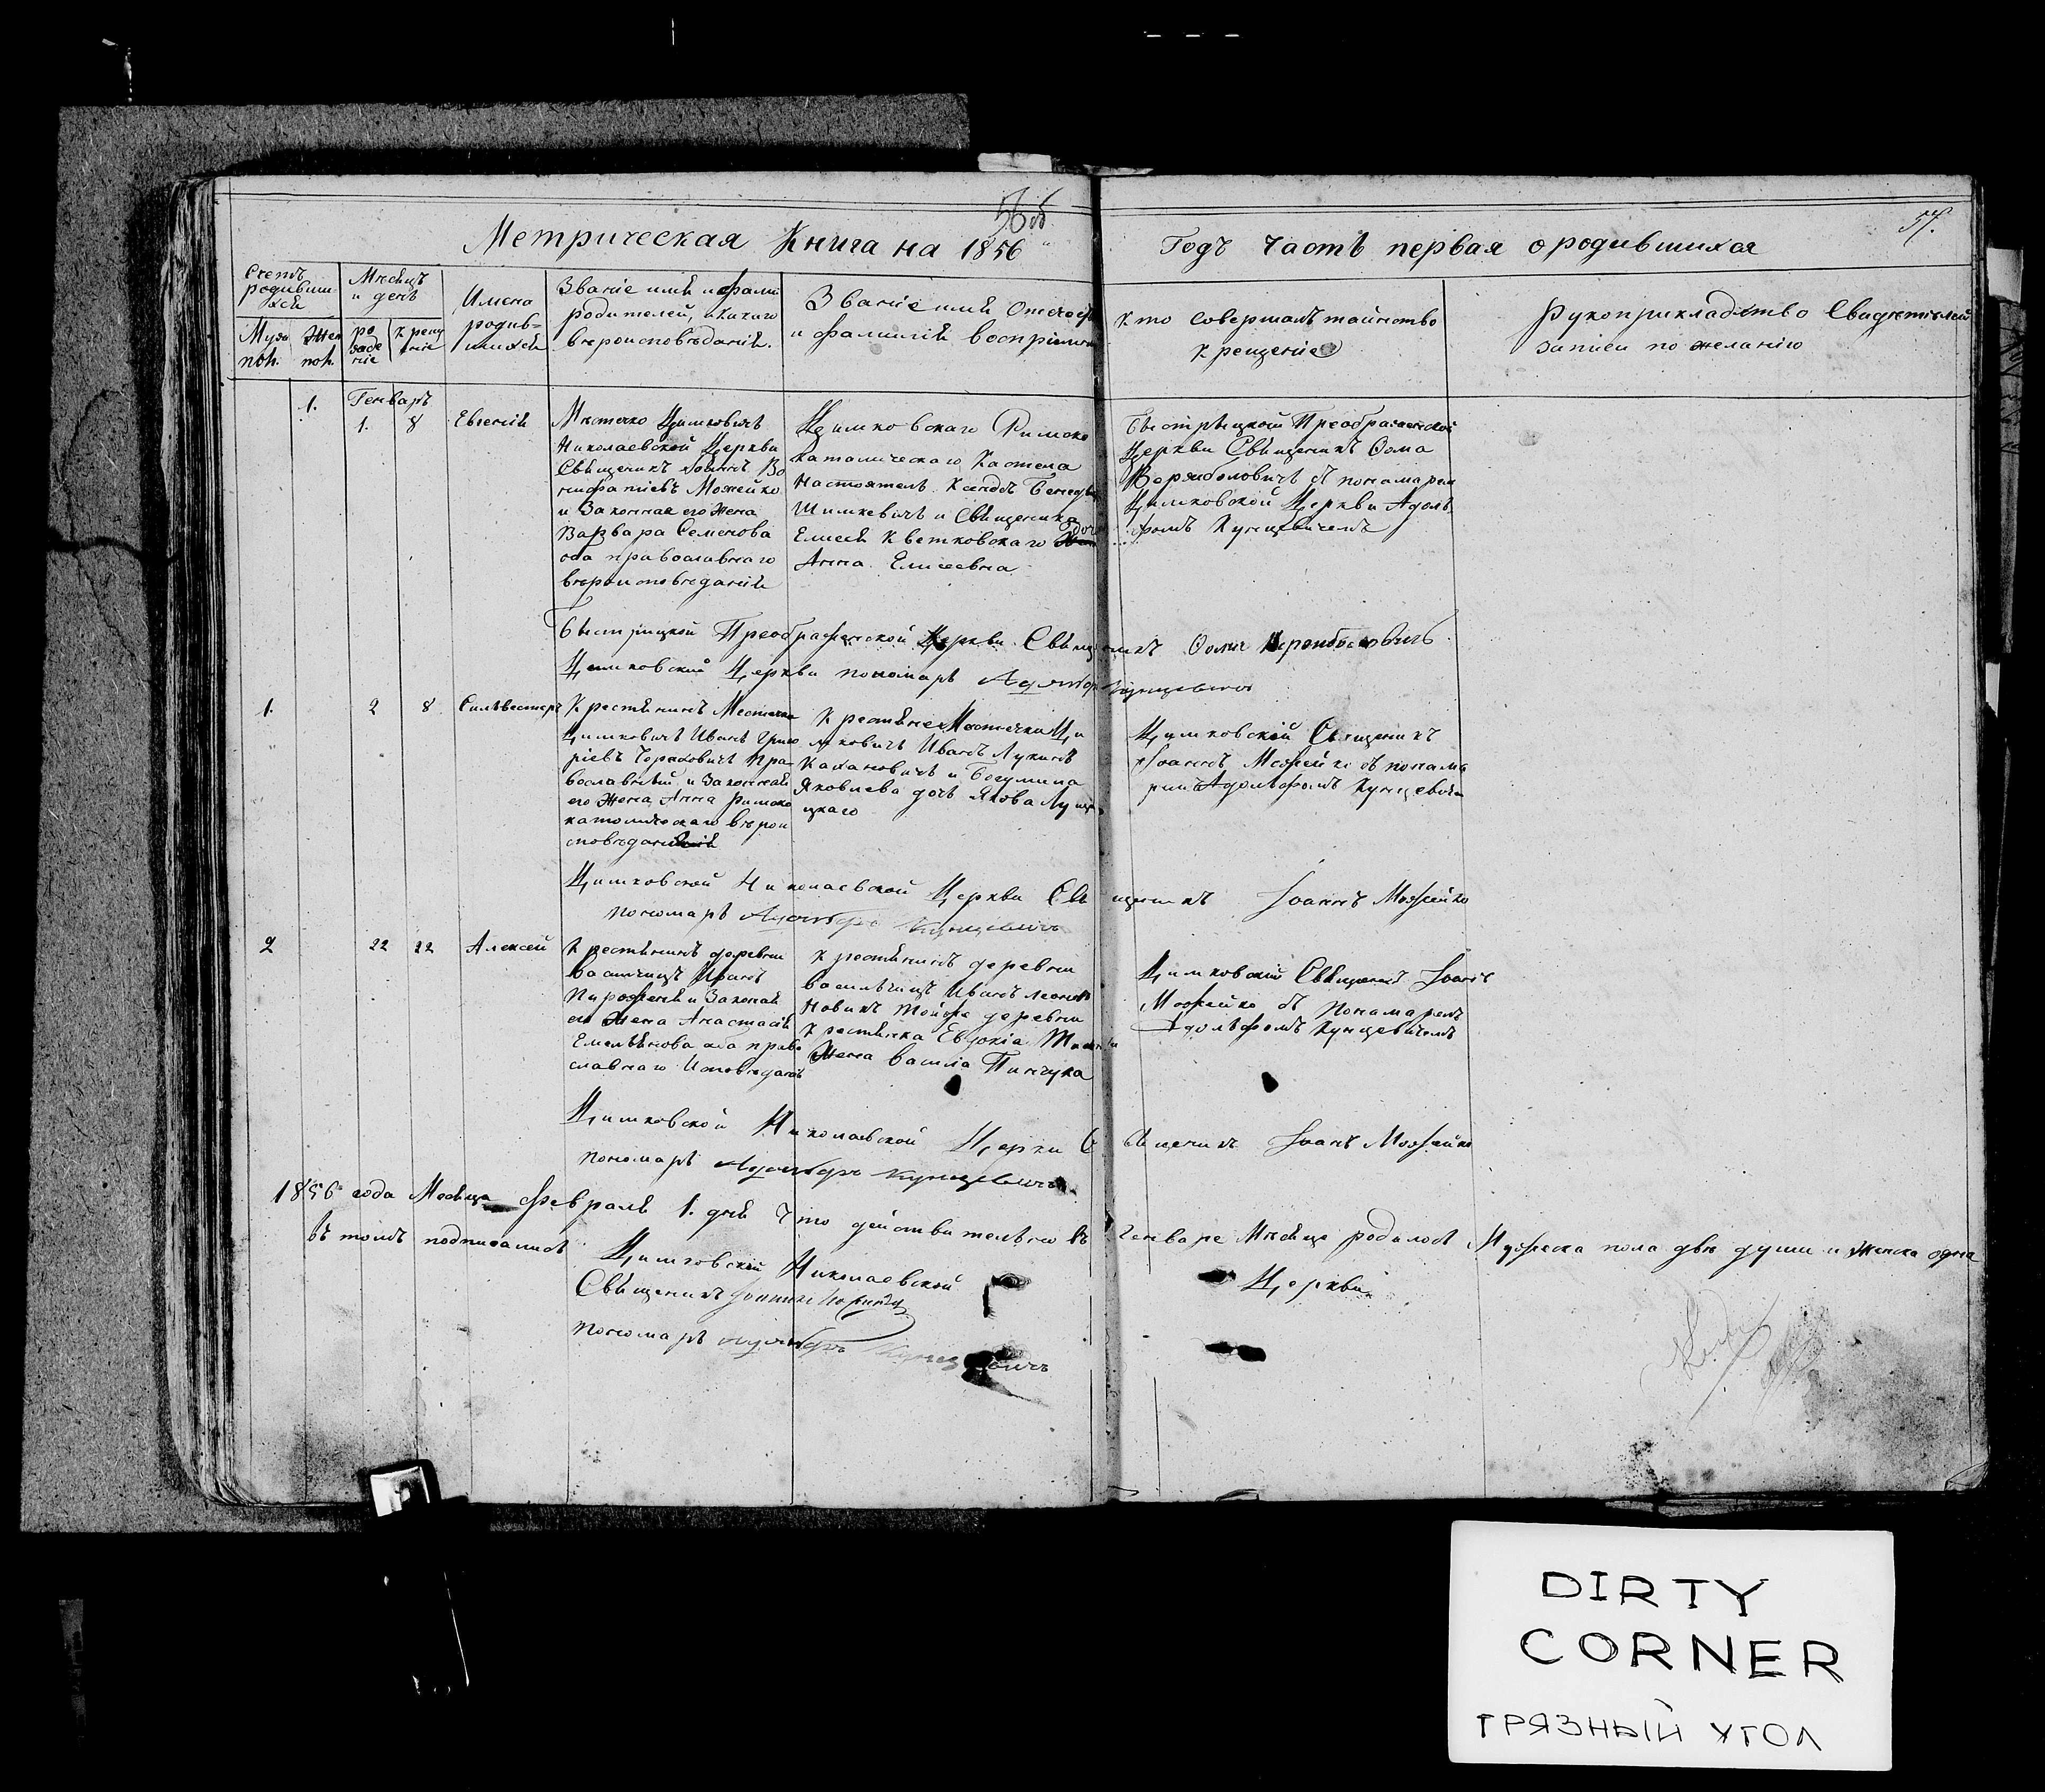 56 об
57.
Метрическая Книга на 1856
Годъ Часть первая о родившихся
Счетъ родивши хся
Муз пол.
Жен пол.
Мѣсяцъ и день
ро жде ніе
креще ніе
Имена родив= шихся
Званіе имя и фами
родителей, и какого
вѣроисповѣданія.
Званіе имя Отчест
и фамилія воспріемн
Кто совершалъ таинство
крещенія
Рукоприкладство Свидѣтелей
записи по желанію
Генварь
1.
1. 8
Евгенія
Мѣстечко Цимковичъ
Николаевской Церкви
Священникъ Іоаннъ Во
нифатіевъ Можейко
и Законная его жена
Варвара Семенова
оба православнаго
вѣроисповѣданія
Цимковскаго Римско
католическаго Костела
Настоятель Ксендзъ
Шимкевичъ и Священника
Елисея Кветковскаго доч
Анна Елисеевна
Быстрыцкой Преображенской
Церкви Священникъ Фома
съ пономарем
Цимковской Церкви Адоль
фомъ Кунцевичемъ
Быстрицкой Преображенской Церкви Священникъ Фома
Цимковской Церкви пономарь Адольфъ Кунцевичъ
1.
2 8
Сильвестеръ
Крестянинъ Местечка
Цимковичъ Иванъ Григо
ріевъ Пра
вославный и Законная
его жена Анна Римско
католическаго вѣрои
споведанія
Крестяне Местечка Ци
мковичъ Иванъ Лукинъ
Кахановичъ и Богумила
Яковлева дочь Якова
цкаго
Цимковскій Священникъ
Іоаннъ Можейко съ понома
ремъ Адольфомъ Кунцевичем
Цимковской Николаевской Церкви Священникъ Іоаннъ Можейко
пономарь Адольфъ Кунцевичъ
2
22 22
Алексей
Крестянинъ деревни
Василчицъ Иванъ
и Законая
его жена Анастасія
Емельянова оба право
славнаго Исповѣданія
Крестянинъ деревни
Васильчицъ Иванъ
Новикъ тойже деревни
Крестянка Евдокія
жена Василія Пинчука
Цимковскій Священникъ Іоанъ
Можейко съ Пономаремъ
Адольфомъ Кунцевичемъ
Цимковской Николаевской Церкви Священикъ Іоанъ Можейко
пономарь Адольфъ Кунцевичъ
1856 года Месяца Февраля 1. дня Что действительно въ Генваре Мѣсяце родилось Мужеска пола двѣ души и Женска одна
въ томъ подписались Цимковской Николаевской Церкви
Священикъ Іоаннъ Можейко
пономарь Адольфъ Кунцевичъ
DIRTY
CORNER
ГРЯЗНЫЙ УГОЛ